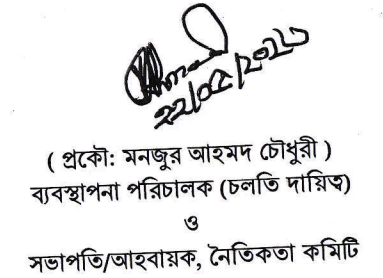 ( প্রকৌ: মনজুর আহমদ চৌধুরী )
ব্যবস্থাপনা পরিচালক (চলতি দায়িত্ব)
ও
সভাপতি/আহবায়ক, নৈতিকতা কমিটি